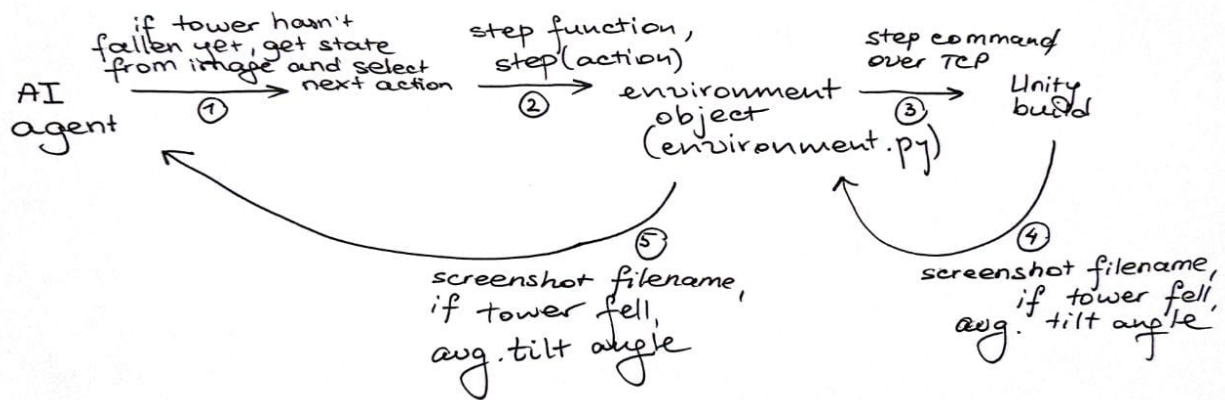 if tower hasn't
fallen yet, get state
from image and select
next action
AI
agent
1
step function,
step(action)
2
environment
object
(environment.py)
step command
over TCP
3
Unity
build
4
screenshot filename,
if tower fell,
avg. tilt angle
5
screenshot filename,
if tower fell,
avg. tilt angle